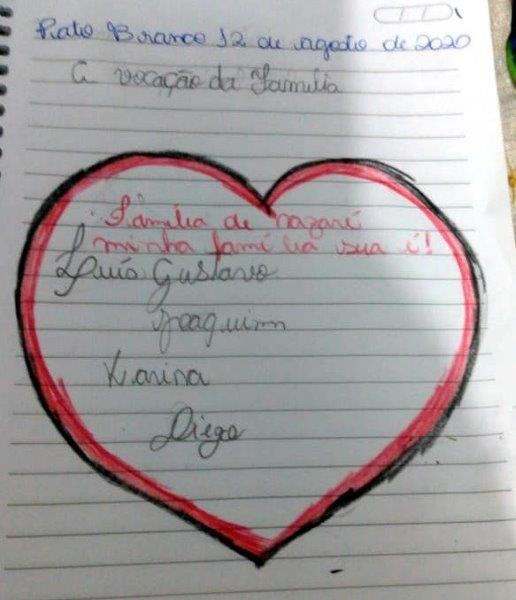 Pato Branco 12 de agosto de 2020
A vocação da Família
Família de nazaré
minha família sua é!
Luís Gustavo
Joaquim
Karina
Diego